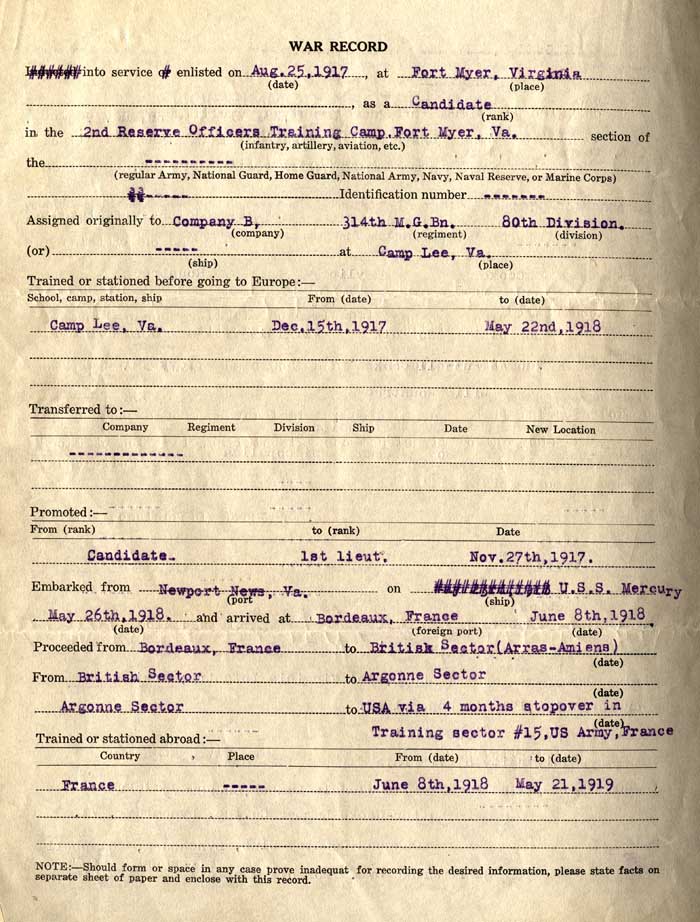 WAR RECORD
into service enlisted on Aug.25,1917, at Fort Myer, Virginia
(date) (place)
, as a Candidate
(rank)
in the 2nd Reserve Officers Training Camp,Fort Myer, Va. section of
(infantry, artillery, aviation, etc.)
the ----------
(regular Army, National Guard, Home Guard, National Army, Navy, Naval Reserve, or Marine Corps)
Identification number -------
Assigned originally to Company B, 314th M.G.Bn. 80th Division.
(company) (regiment) (division)
(or) ----- at Camp Lee, Va.
(ship) (place)
Trained or stationed before going to Europe:—
School, camp, station, ship From (date) to (date)
Camp Lee, Va. Dec.15th,1917 May 22nd,1918
Transferred to:—
Company Regiment Division Ship Date New Location
-------------
Promoted:—
From (rank) to (rank) Date
Candidate. 1st lieut. Nov.27th,1917.
Embarked from Newport News, Va. on U.S.S. Mercury
(port (ship)
May 26th,1918. and arrived at Bordeaux, France June 8th,1918
(date) (foreign port) (date)
Proceeded from Bordeaux, France to British Sector(Arras-Amiens)
(date)
From British Sector to Argonne Sector
(date)
Argonne Sector to USA via 4 months stopover in
(date)
Training sector #15,US Army,France
Trained or stationed abroad:—
Country Place From (date) to (date)
France ----- June 8th,1918 May 21,1919
NOTE:—Should form or space in any case prove inadequat for recording the desired information, please state facts on
separate sheet of paper and enclose with this record.